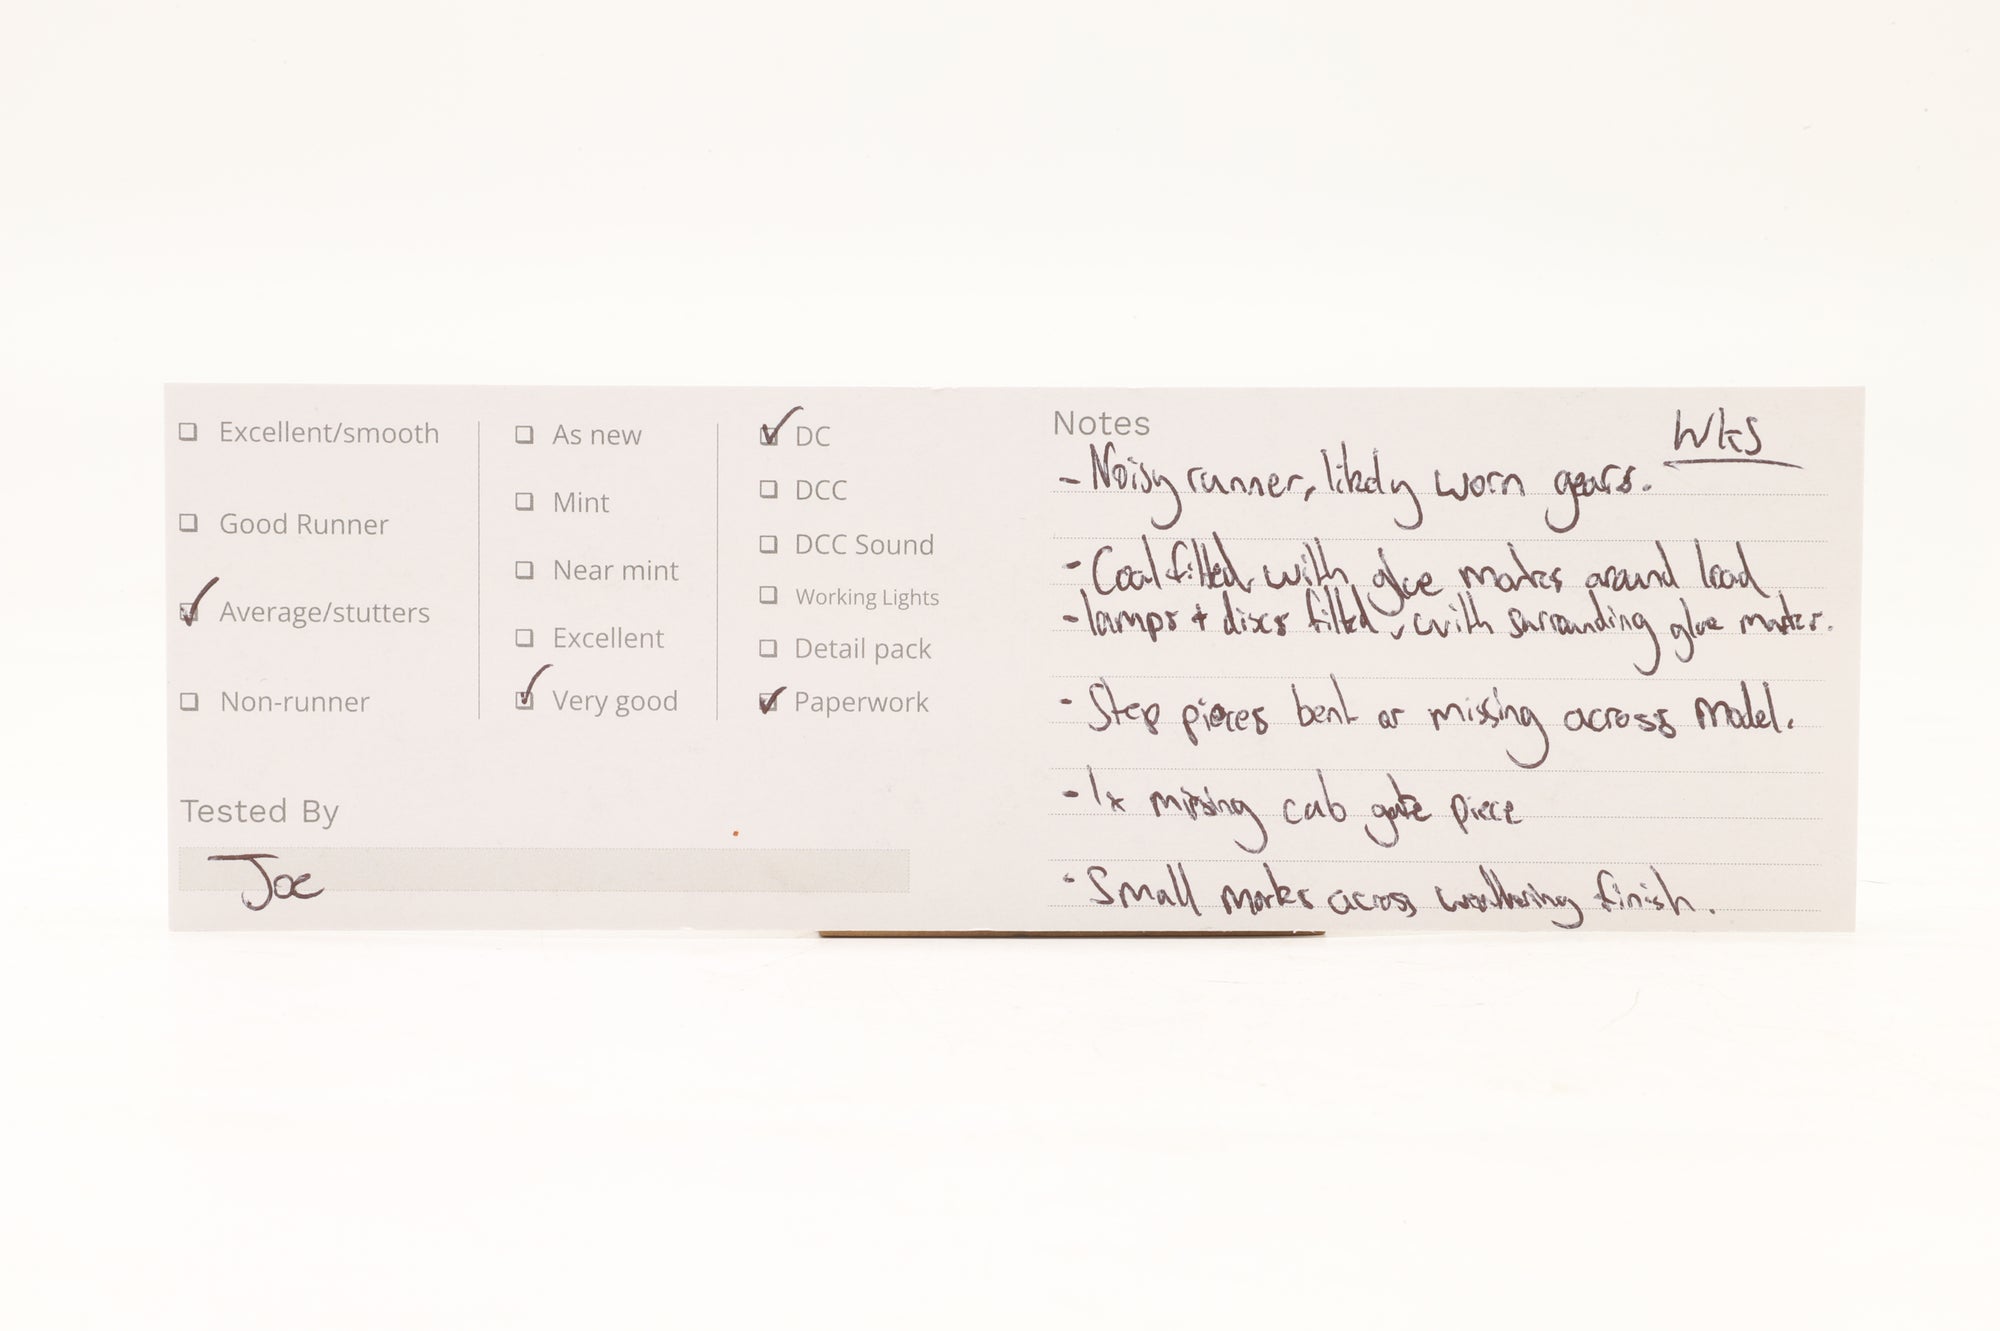 Excellent/smooth
Good Runner
Average/stutters
Non-runner
As new
Mint
Near mint
Excellent
Very good
DC
DCC
DCC Sound
Working Lights
Detail pack
Paperwork
Tested By
Joe
Notes
Wks
- Noisy runner, likely worn gears.
- Coal fitted, with glue marks around load
- lamps + discs fitted, with surrounding glue marks.
- Step pieces bent or missing across model.
- 1x missing cab gate piece
- Small marks across weathering finish.